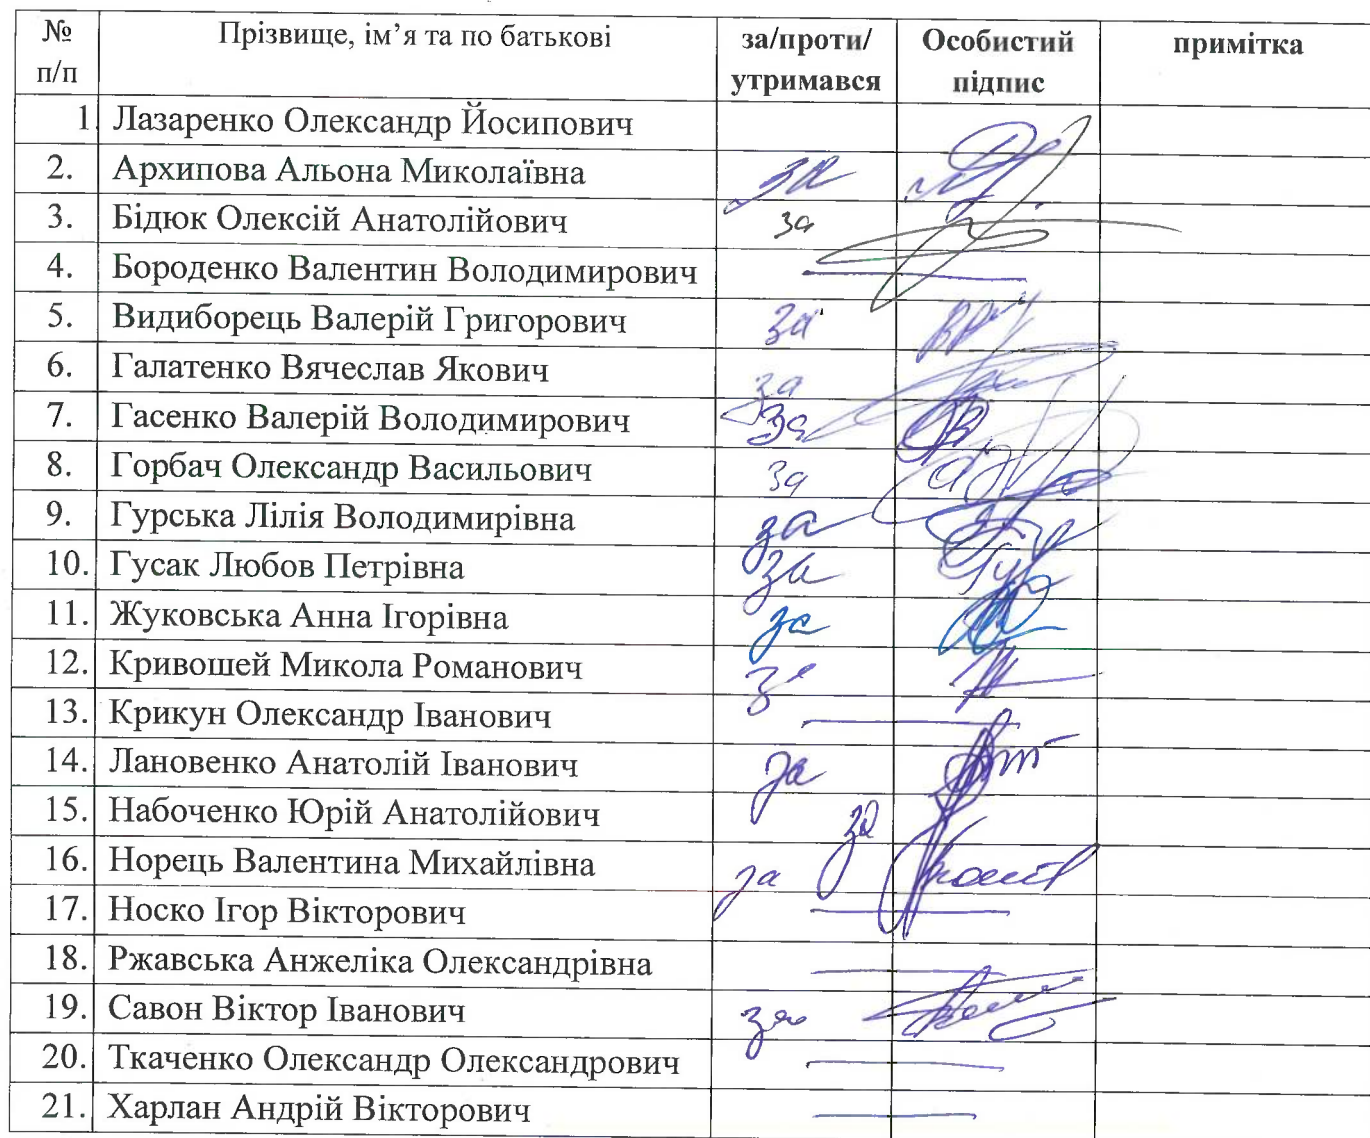 № п/п Прізвище, ім’я та по батькові за/проти/ утримався Особистий підпис примітка
1 Лазаренко Олександр Йосипович
2. Архипова Альона Миколаївна за
3. Бідюк Олексій Анатолійович за
4. Бороденко Валентин Володимирович
5. Видиборець Валерій Григорович за
6. Галатенко Вячеслав Якович за
7. Гасенко Валерій Володимирович за
8. Горбач Олександр Васильович за
9. Гурська Лілія Володимирівна за
10. Гусак Любов Петрівна за
11. Жуковська Анна Ігорівна за
12. Кривошей Микола Романович за
13. Крикун Олександр Іванович
14. Лановенко Анатолій Іванович за
15. Набоченко Юрій Анатолійович за
16. Норець Валентина Михайлівна за
17. Носко Ігор Вікторович
18. Ржавська Анжеліка Олександрівна
19. Савон Віктор Іванович за
20. Ткаченко Олександр Олександрович
21. Харлан Андрій Вікторович